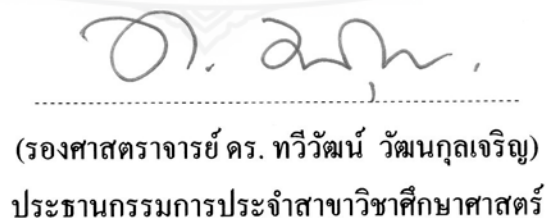 (รองศาสตราจารย์ ดร. ทวีวัฒน์ วัฒนกุลเจริญ)
ประธานกรรมการประจำสาขาวิชาศึกษาศาสตร์